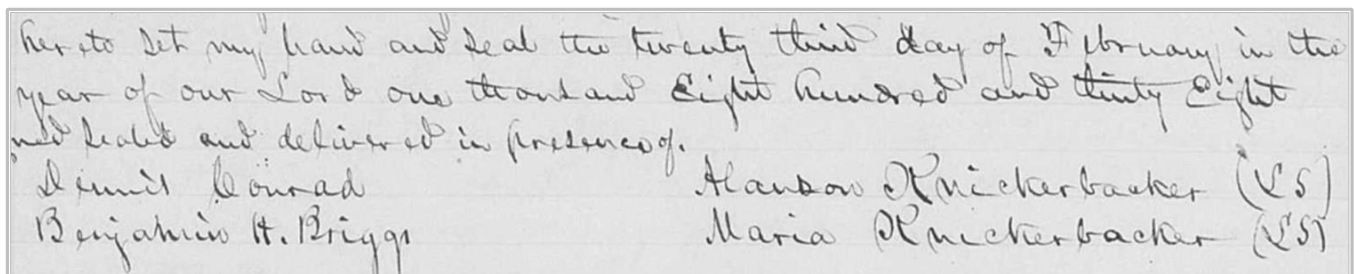 hereto set my hand and seal the twenty third day of February in the
year of our Lord one thousand Eight hundred and thirty Eight
ned sealed and delivered in presence of.
Dennis Conrad Alanson Knickerbacker (LS)
Benjamin H. Briggs Maria Knickerbacker (LS)